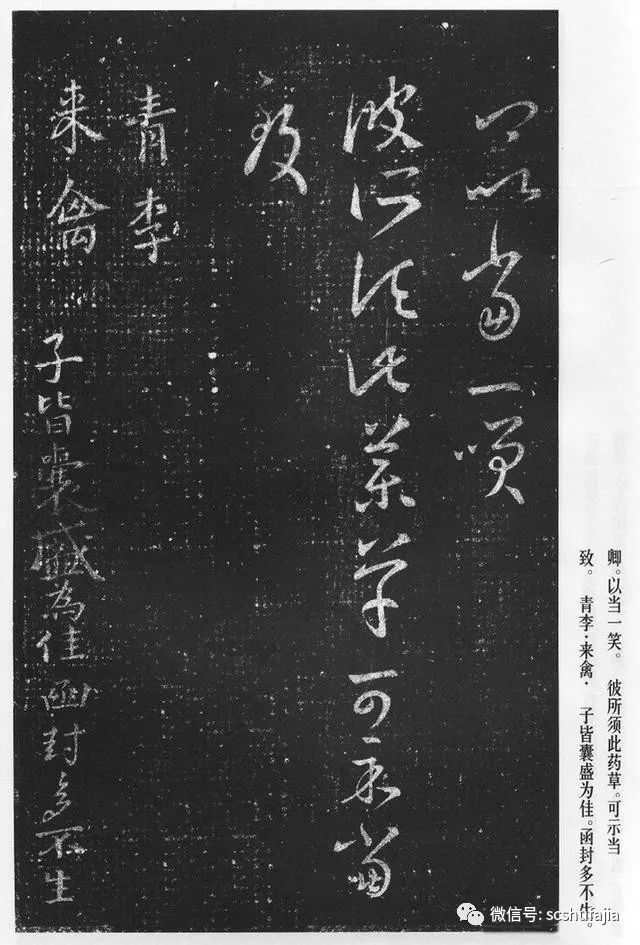 卿以当一笑
彼所须此藥草可示当
致
青李
来禽
子皆囊盛為佳函封多不生
卿。以当一笑。 彼所须此药草。可示当
致。 青李·来禽· 子皆囊盛为佳。函封多不生。
微信号: scshufajia